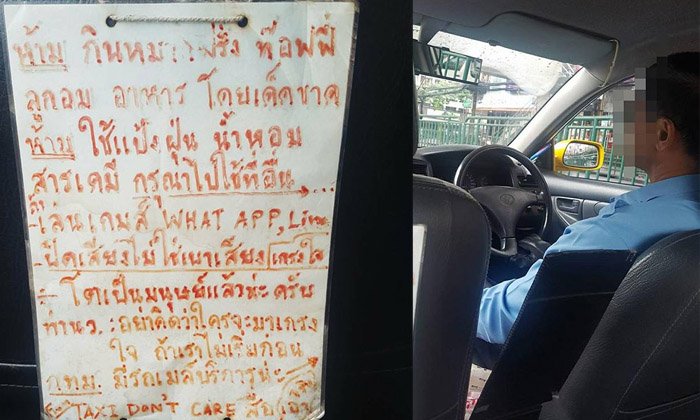 ห้าม กินหมากฝรั่ง ท๊อฟฟี่
ลูกอม อาหาร โดยเด็ดขาด
ห้าม ใช้แป้งฝุ่น น้ำหอม
สารเคมี กรุณาไปใช้ที่อื่น...
เล่นเกมส์ WHAT APP, Line
-ปิดเสียงไม่ใช่เบาเสียง เกรงใจ
- โตเป็นมนุษย์แล้วนะครับ
อย่าคิดว่าใครจะมาเกรง
ใจ ถ้าเราไม่เริ่มก่อน
กทม. มีรถเมล์บริการ
TAXI DON'T CARE